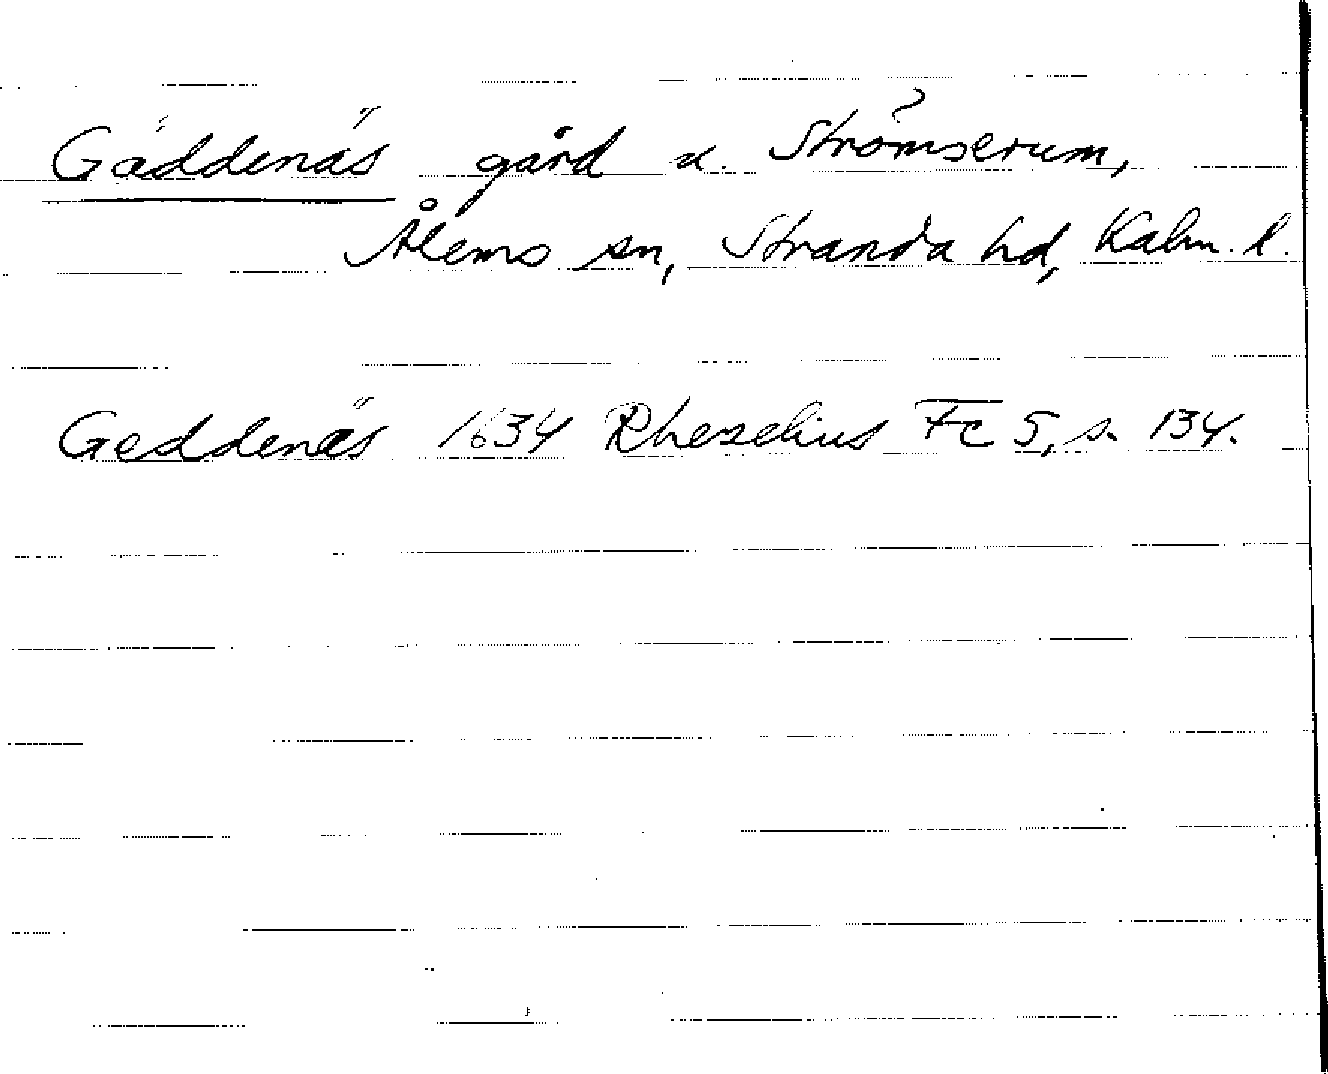 Gäddenäs gård u. Strömserum,
Ålems sn, Stranda hd, Kalm. l.
Geddenäs 1634 Rhezelius Fc 5, s. 134.